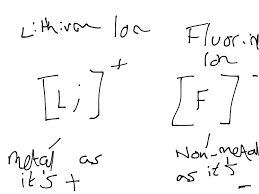 Lithium Ion
Fluorin
Ion
[Li]+
[F]-
metal as
it's +
Non-metal
as it's
-